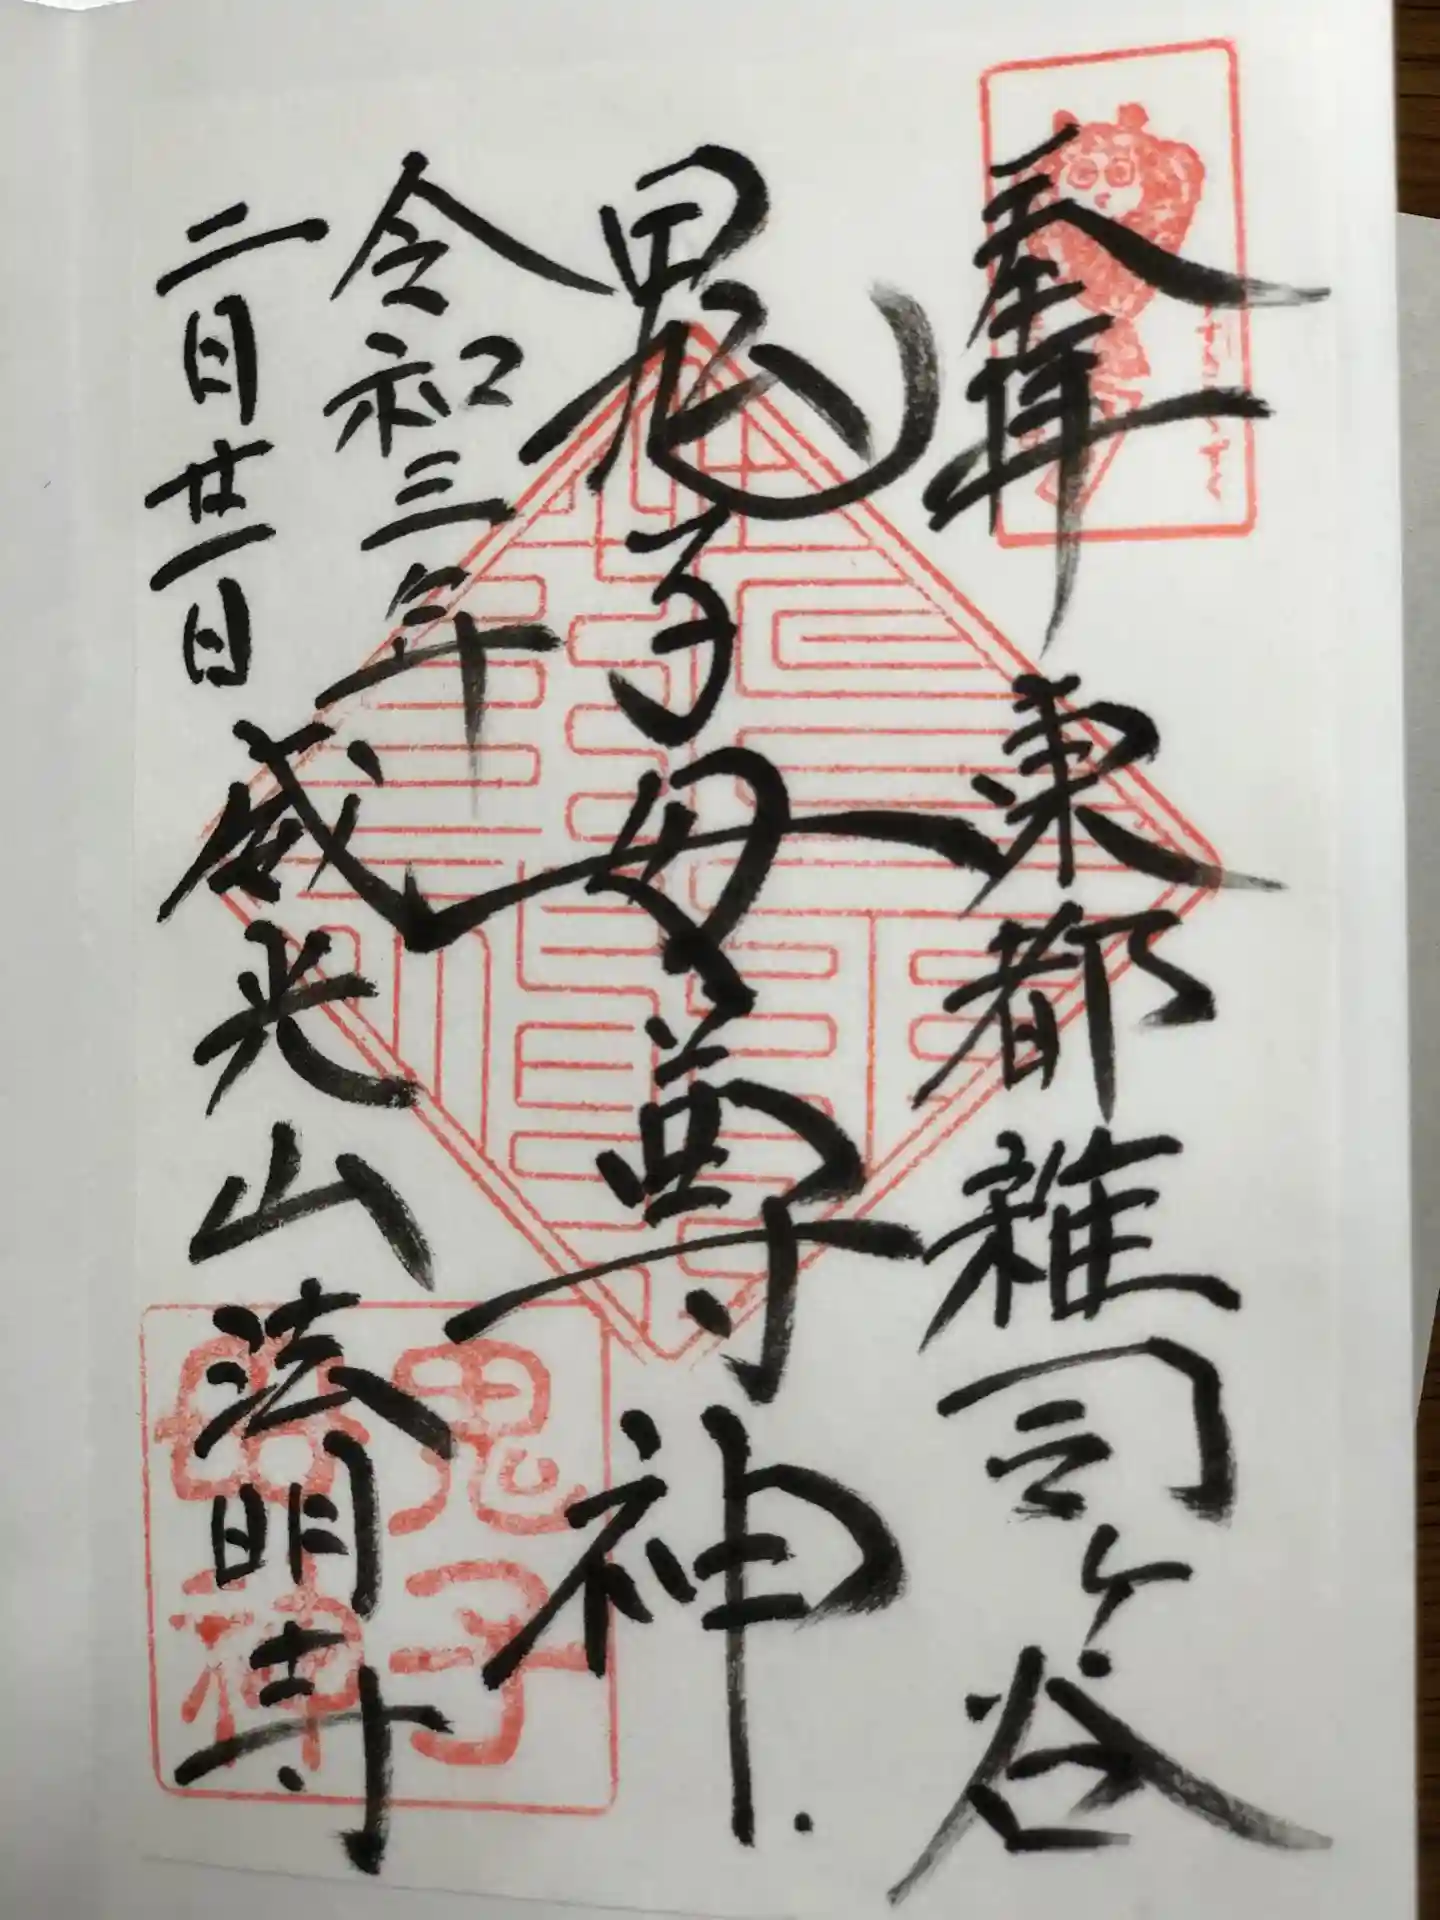 奉拝
東都雑司ヶ谷
鬼子母尊神
令和三年
二月廿一日
威光山法明寺
鬼子
母神